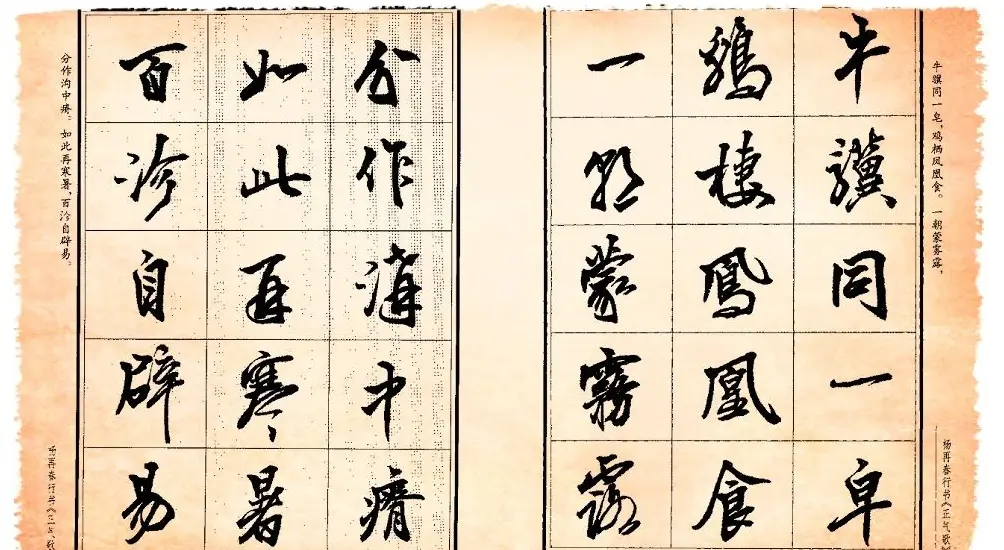 牛骥同一皂，鸡栖凤凰食。一朝蒙雾露，
杨再春行书《正气歌》
牛驥同一皁
鷄棲鳳凰食
一朝蒙霧露
分作溝中瘠
如此再寒暑
百沴自辟易
分作沟中瘠。如此再寒暑，百沴自辟易。
杨再春行书《正气歌